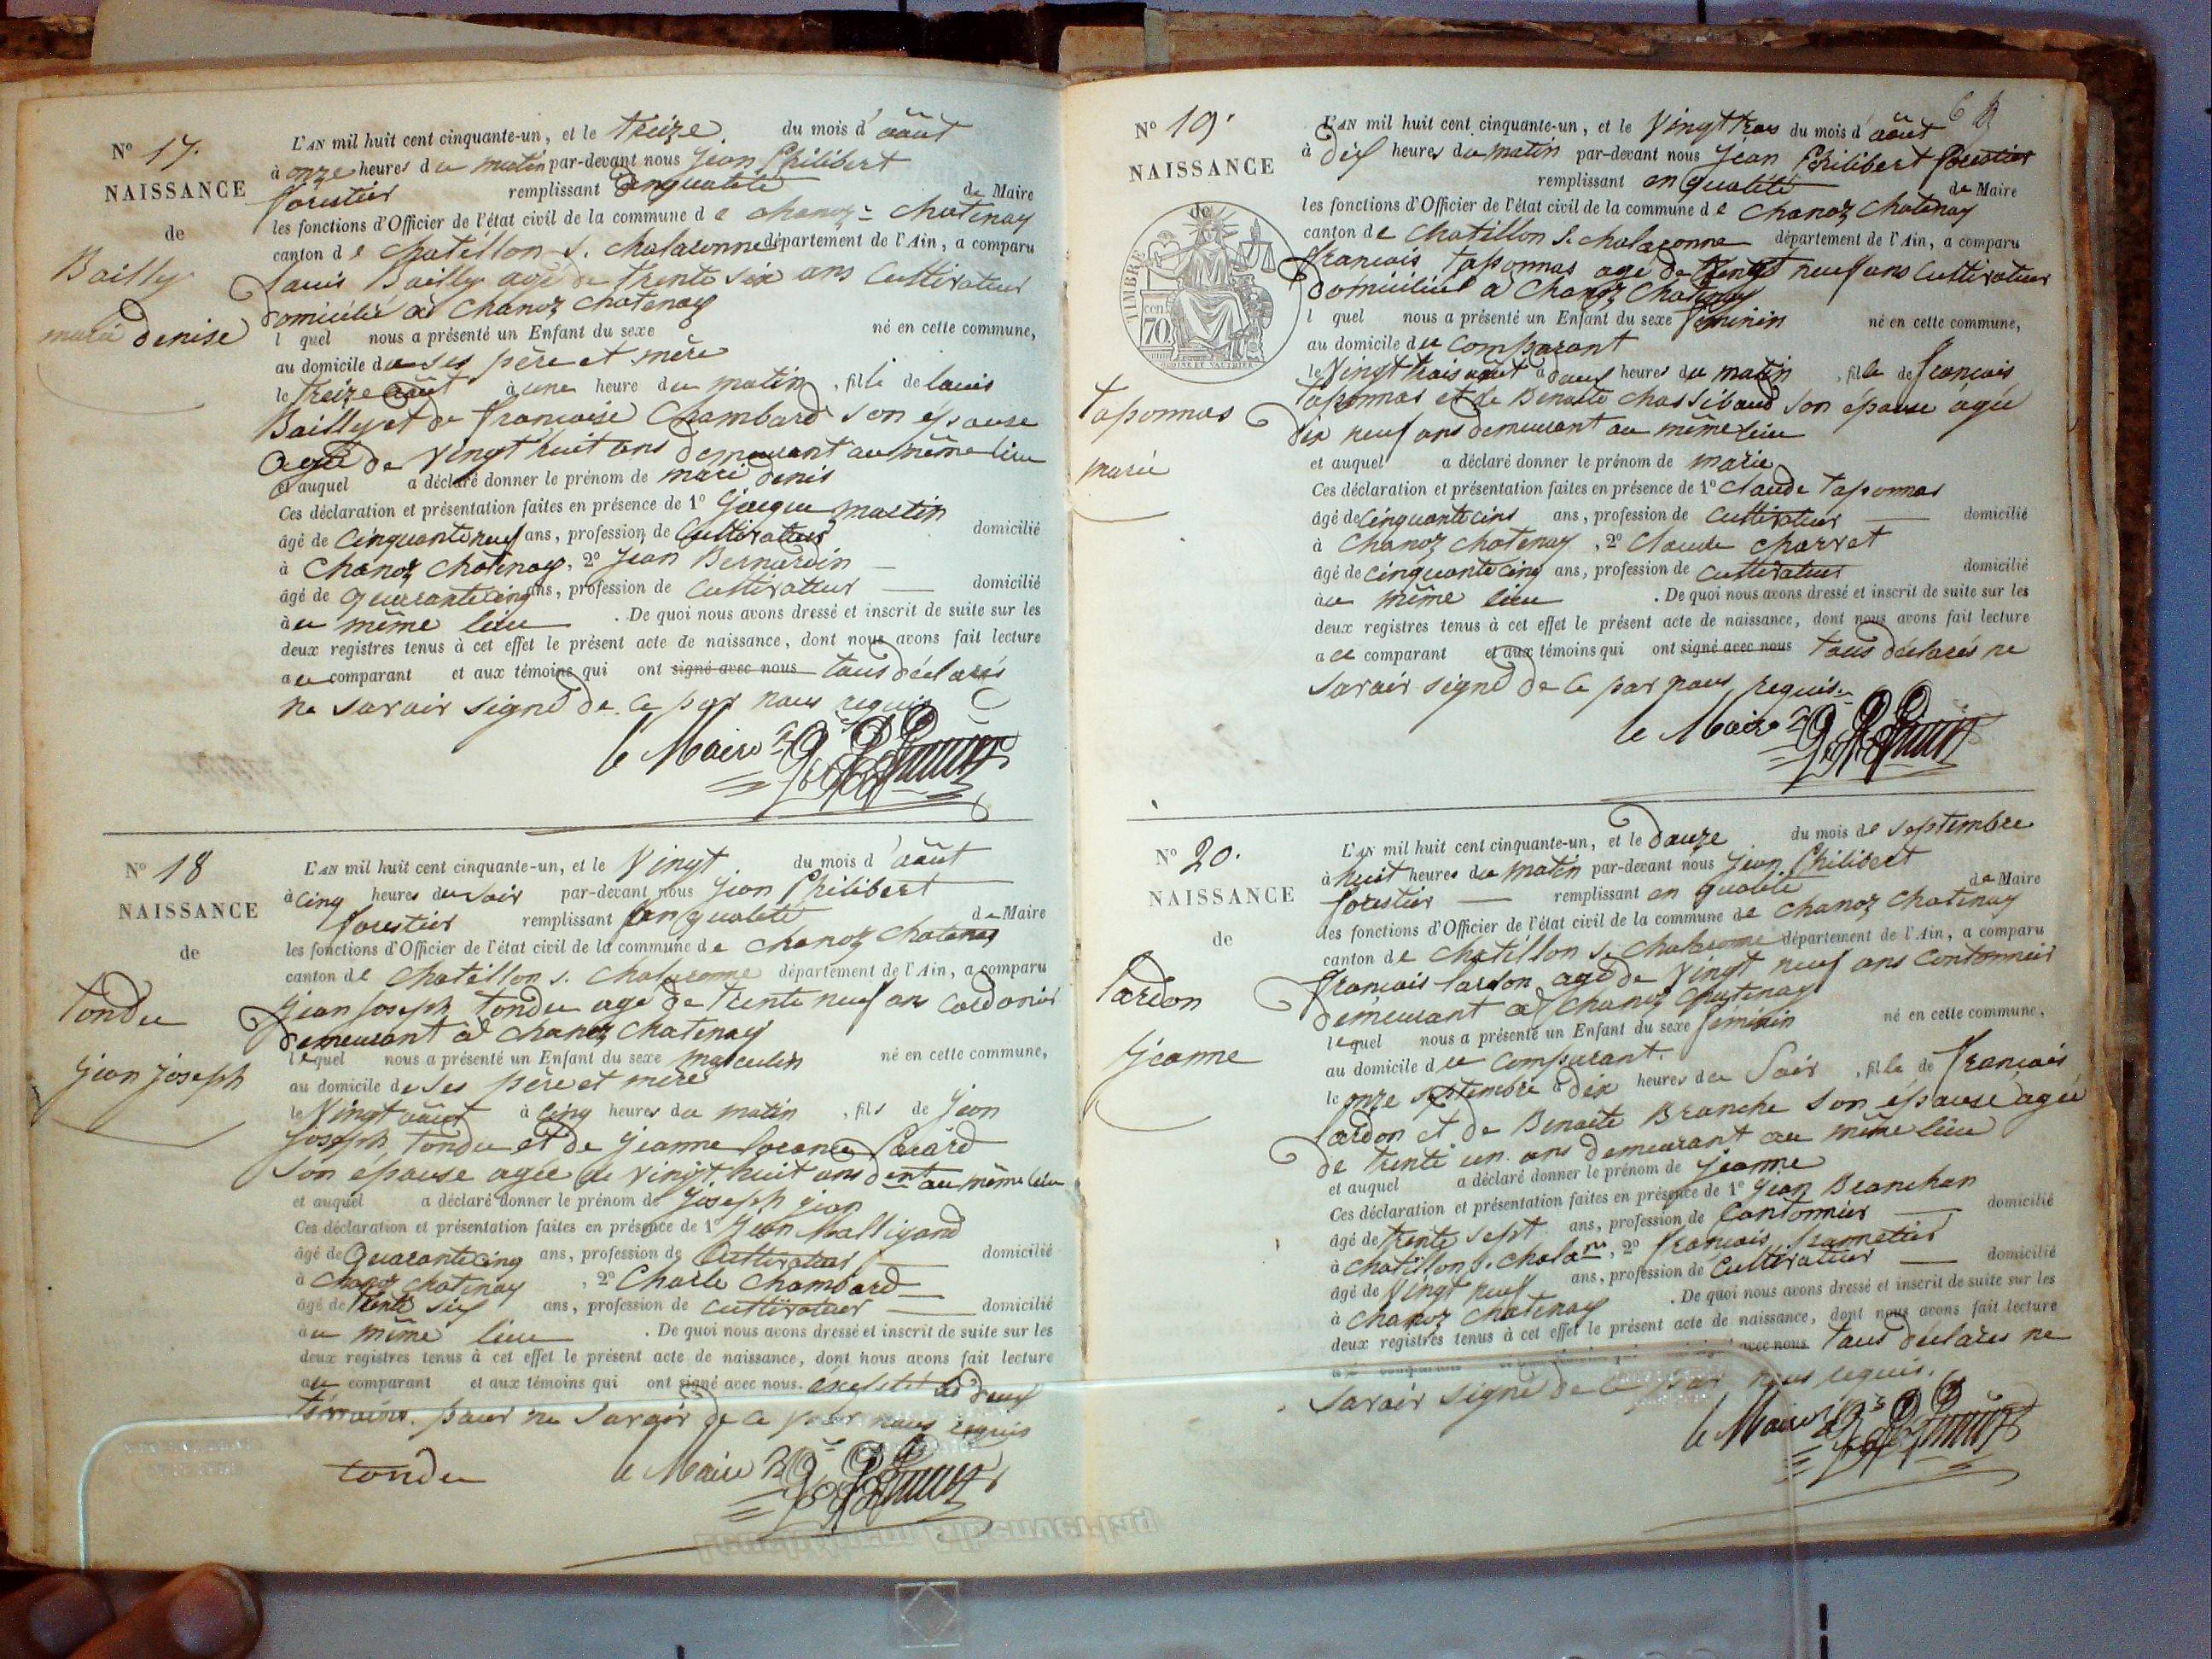 Nº 17.
NAISSANCE
de
Bailly
marie denise
L'AN mil huit cent cinquante-un, et le treize du mois d'août
à onze heures du matin par-devant nous Jean Philibert
forestier remplissant en qualité de Maire
les fonctions d'Officier de l'état civil de la commune de chanoz-chatenay
canton de chatillon s. chalaronne département de l'Ain, a comparu
Louis Bailly agé de trente six ans cultivateur
domicilié à chanoz chatenay
l quel nous a présenté un Enfant du sexe né en cette commune,
au domicile de ses père et mère
le treize août à une heure du matin, fille de louis
Bailly et de françoise Chambard son épouse
agée de vingt huit ans demeurant au même lieu
et auquel a déclaré donner le prénom de marie denis
Ces déclaration et présentation faites en présence de 1º Jacque martin
âgé de cinquante neuf ans, profession de Cultivateur domicilié
à chanoz chatenay, 2º Jean Bernardin
âgé de quarante cinq ans, profession de cultivateur domicilié
au même lieu. De quoi nous avons dressé et inscrit de suite sur les
deux registres tenus à cet effet le présent acte de naissance, dont nous avons fait lecture
au comparant et aux témoins qui ont signé avec nous tous déclarés
ne savoir signé de ce par nous requis
le Maire
Nº 18
NAISSANCE
de
tondu
jean joseph
L'AN mil huit cent cinquante-un, et le Vingt du mois d'août
à cinq heures du soir par-devant nous Jean Philibert
forestier remplissant en qualité de Maire
les fonctions d'Officier de l'état civil de la commune de chanoz chatenay
canton de chatillon s. chalaronne département de l'Ain, a comparu
jean joseph tondu agé de trente neuf ans cordonier
demeurant à chanoz chatenay
lequel nous a présenté un Enfant du sexe masculin né en cette commune,
au domicile de ses père et mère
le Vingt août à cinq heures du matin, fils de Jean
joseph tondu et de jeanne
son épouse agée de vingt huit ans dent au même lieu
et auquel a déclaré donner le prénom de joseph jean
Ces déclaration et présentation faites en présence de 1º Jean Malligand
âgé de quarante cinq ans, profession de Cultivateur domicilié
à chanoz chatenay, 2º Charle chambard
âgé de trente six ans, profession de cultivateur domicilié
au même lieu. De quoi nous avons dressé et inscrit de suite sur les
deux registres tenus à cet effet le présent acte de naissance, dont nous avons fait lecture
au comparant et aux témoins qui ont signé avec nous. deux
témoins. pour ne savoir de ce par nous requis
tondu le Maire
6
Nº 19.
NAISSANCE
de
TIMBRE
70 cen
taponnas
marie
L'AN mil huit cent cinquante-un, et le Vingt trois du mois d'août
à dix heures du matin par-devant nous Jean Philibert forestier
remplissant en qualité de Maire
les fonctions d'Officier de l'état civil de la commune de chanoz chatenay
canton de chatillon s. chalaronne département de l'Ain, a comparu
françois taponnas agé de vingt neuf ans cultivateur
domicilié à chanoz chatenay
l quel nous a présenté un Enfant du sexe féminin né en cette commune,
au domicile du comparant
le Vingt trois août à deux heures du matin, fille de françois
taponnas et de Benoite chassibaud son épouse agée
dix neuf ans demeurant au même lieu
et auquel a déclaré donner le prénom de marie
Ces déclaration et présentation faites en présence de 1º Claude taponnas
âgé de cinquante cinq ans, profession de cultivateur domicilié
à chanoz chatenay, 2º Claude charvet
âgé de cinquante cinq ans, profession de cultivateur domicilié
au même lieu. De quoi nous avons dressé et inscrit de suite sur les
deux registres tenus à cet effet le présent acte de naissance, dont nous avons fait lecture
au comparant et aux témoins qui ont signé avec nous tous déclarés ne
savoir signé de ce par nous requis
le Maire
Nº 20.
NAISSANCE
de
lardon
jeanne
L'AN mil huit cent cinquante-un, et le douze du mois de septembre
à huit heures du matin par-devant nous Jean Philibert
forestier remplissant en qualité de Maire
les fonctions d'Officier de l'état civil de la commune de chanoz chatenay
canton de chatillon s. chalaronne département de l'Ain, a comparu
françois lardon agé de vingt neuf ans cantonnier
demeurant à chanoz chatenay
lequel nous a présenté un Enfant du sexe féminin né en cette commune,
au domicile du comparant.
le onze septembre à dix heures du soir, fille de françois
lardon et de Benoite Branche son épouse agée
de trente un ans demeurant au même lieu
et auquel a déclaré donner le prénom de jeanne
Ces déclaration et présentation faites en présence de 1º Jean Branchan
âgé de trente sept ans, profession de Cantonnier domicilié
à chatillon s. chalane, 2º françois
âgé de vingt neuf ans, profession de Cultivateur domicilié
à chanoz chatenay. De quoi nous avons dressé et inscrit de suite sur les
deux registres tenus à cet effet le présent acte de naissance, dont nous avons fait lecture
avec nous tous déclarés ne
savoir signé de ce par nous requis.
le Maire